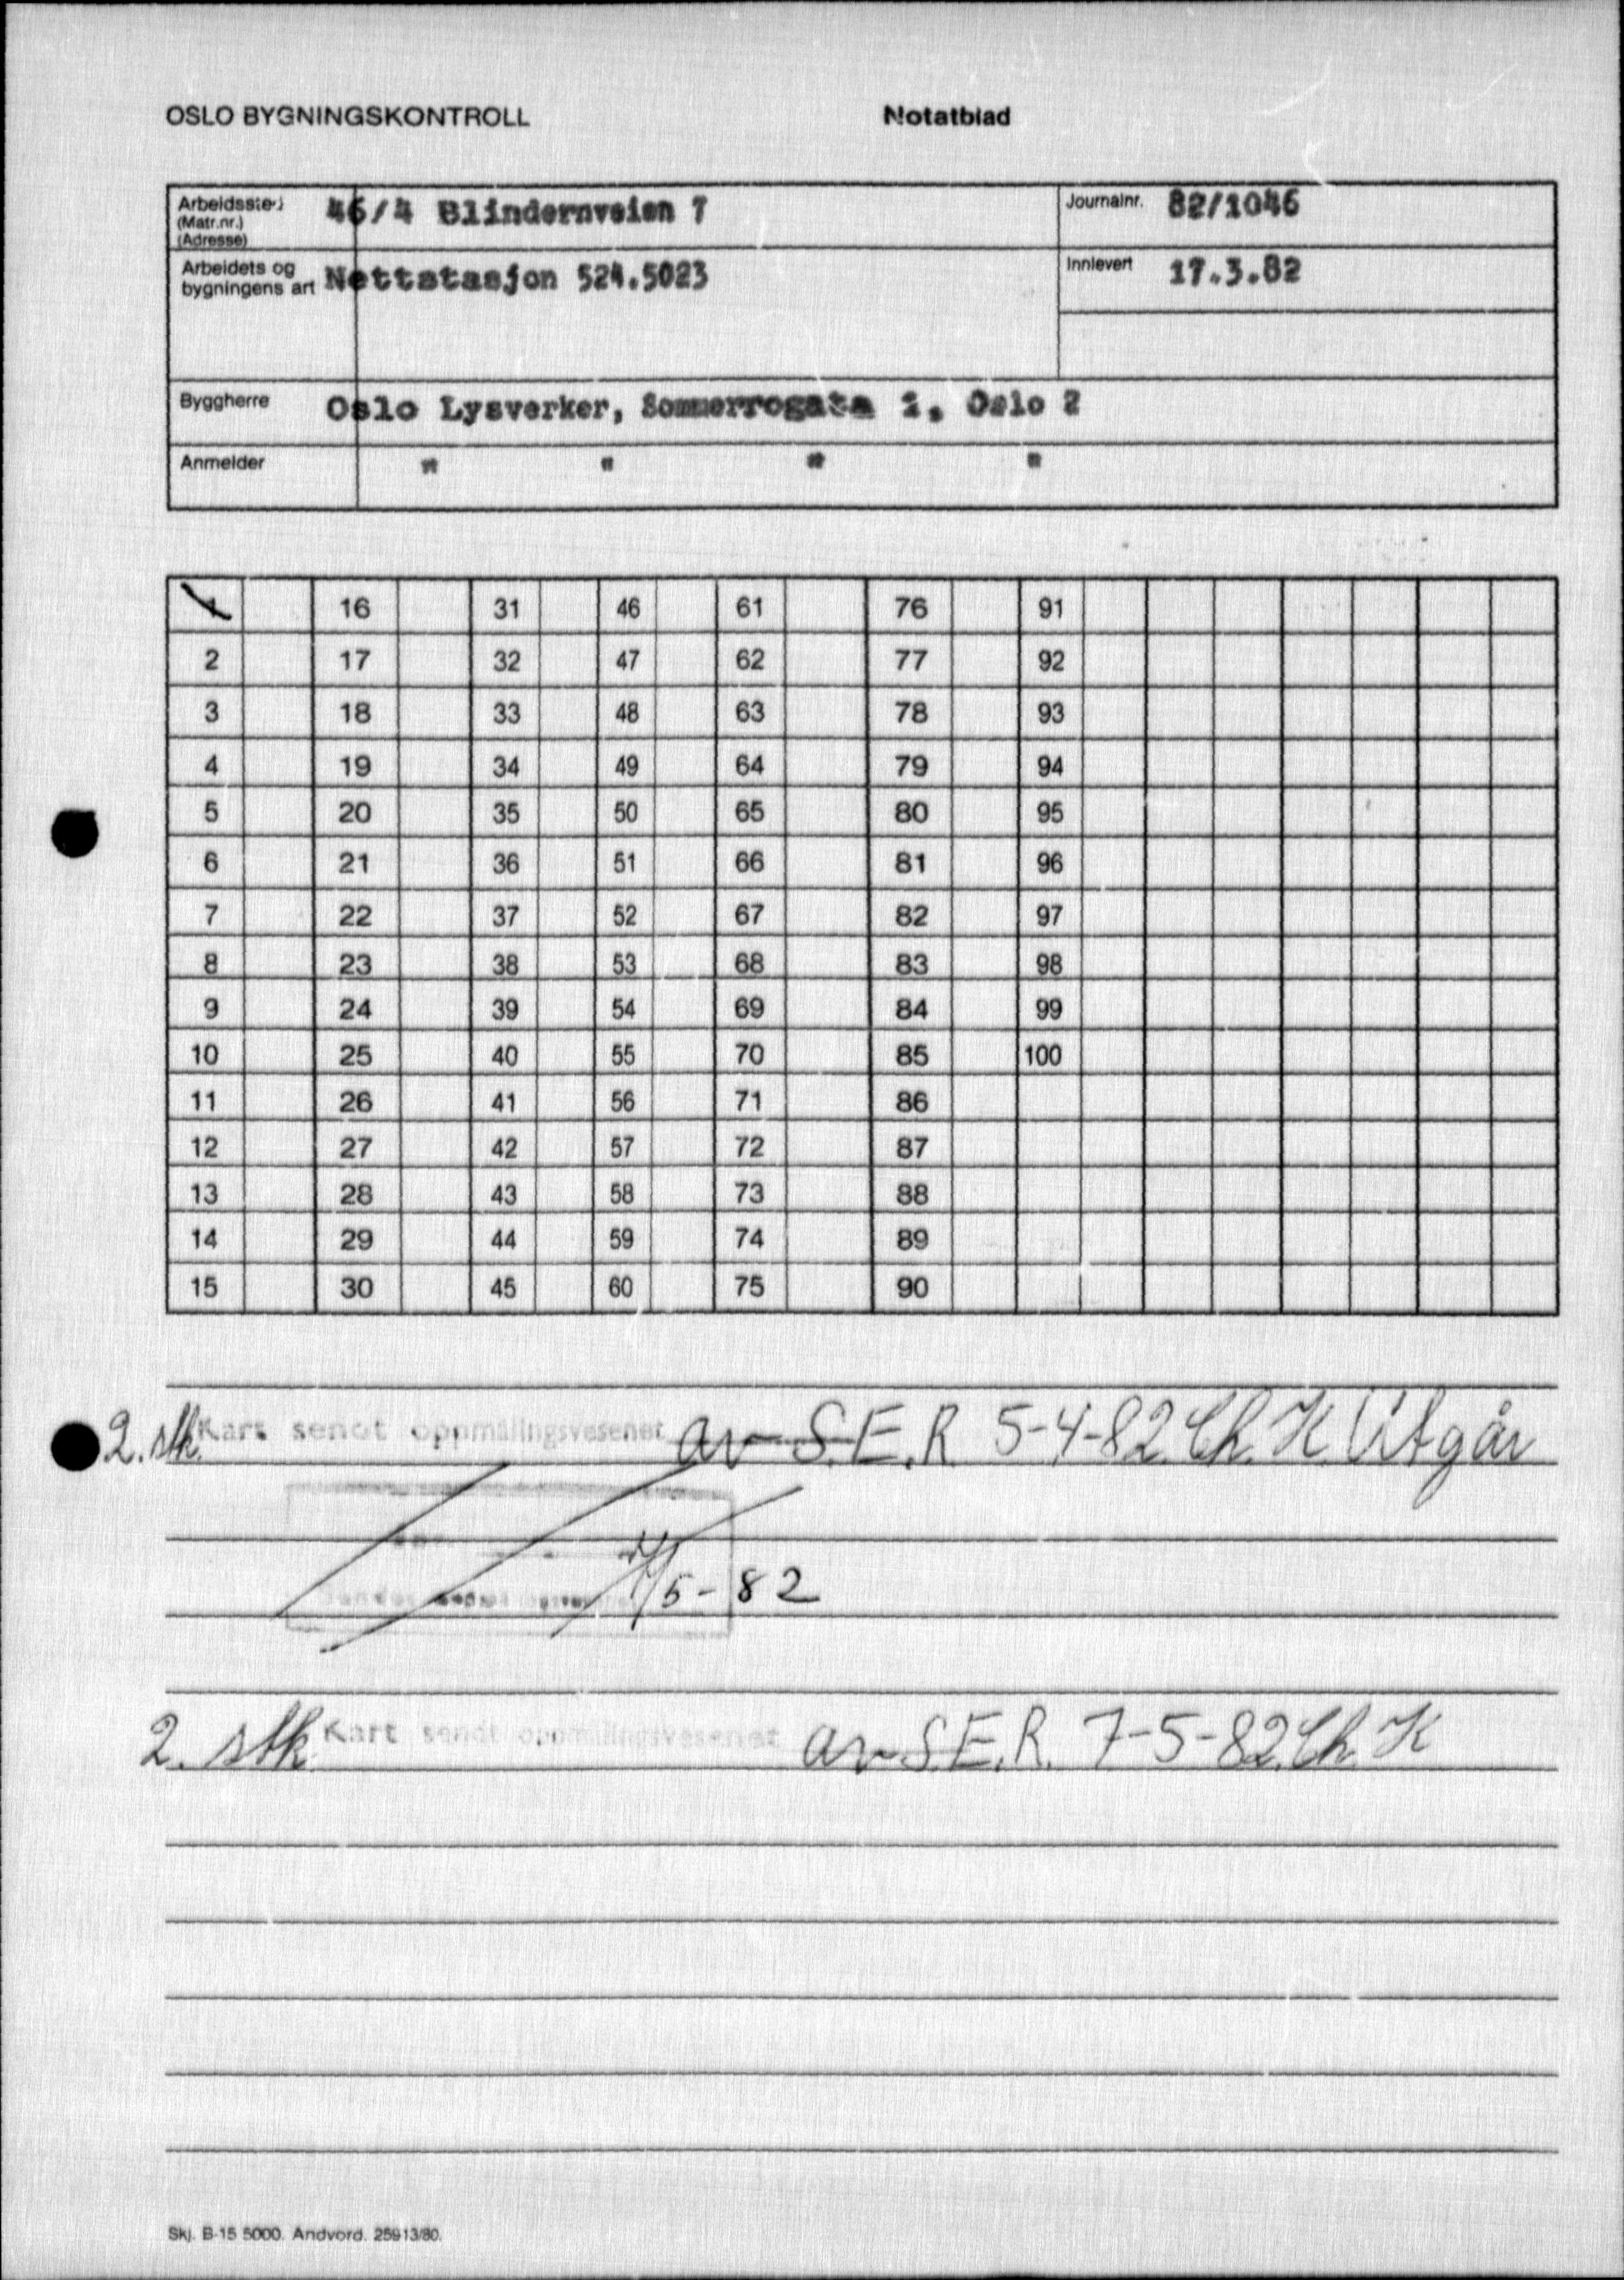 OSLO BYGNINGSKONTROLL Notatblad
Arbeidssted 46/4 Blindernveien 7 Journalnr. 82/1046
(Matr.nr.)
(Adresse)
Arbeidets og Nettstasjon 524.5023 Innlevert 17.3.82
bygningens art
Byggherre Oslo Lysverker, Sommerrogata 1, Oslo 2
Anmelder " " " "
1 16 31 46 61 76 91
2 17 32 47 62 77 92
3 18 33 48 63 78 93
4 19 34 49 64 79 94
5 20 35 50 65 80 95
6 21 36 51 66 81 96
7 22 37 52 67 82 97
8 23 38 53 68 83 98
9 24 39 54 69 84 99
10 25 40 55 70 85 100
11 26 41 56 71 86
12 27 42 57 72 87
13 28 43 58 73 88
14 29 44 59 74 89
15 30 45 60 75 90
2. stk. Kart sendt oppmålingsvesenet av S.E.R 5-4-82 Ch. K. Utgår
/5-82
2. stk Kart sendt oppmålingsvesenet av S.E.R. 7-5-82. Ch. K
Skj. B-15 5000. Andvord. 25913/80.